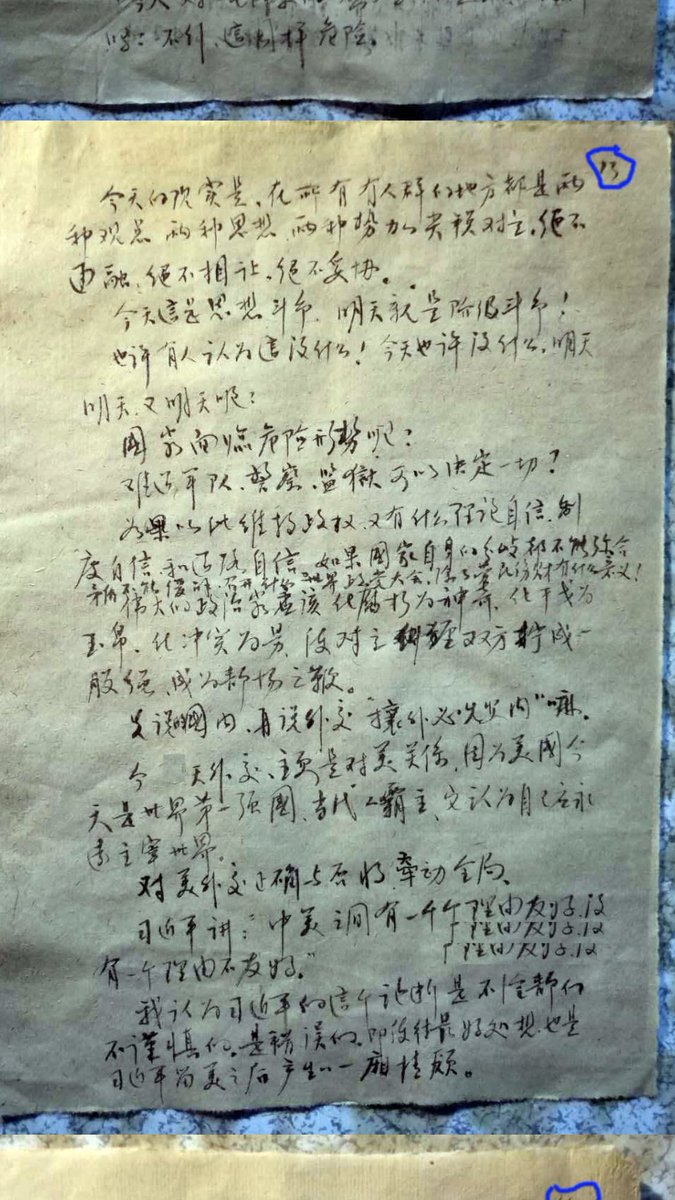 吗？不行，这同样危险。
13
今天的现实是，在所有有人群的地方都是两
种观点 两种思想 两种势力尖锐对立，绝不
通融，绝不相让，绝不妥协。
今天這是思想斗争，明天就是阶级斗争！
也许有人认为這没什么！今天也许没什么，明天
明天又明天呢？
國家面临危险形势呢？
难道军队、警察、监獄可以决定一切？
如果以此维持政权，又有什么理论自信，制
度自信和道路自信，如果國家自身的分歧都不能弥合
矛盾不能 世界政党大会，除 有什么意义！
伟大的政治家应该化腐朽为神奇，化干戈为
玉帛，化冲突为 ，使对立 双方拧成一
股绳，成为
先说國内，再说外交“攘外必先安内”嘛。
今天外交，主要是对美关係，因为美國今
天是世界第一强國，当代 霸主，它认为自己应永
遠主宰世界。
对美外交正确与否将牵动全局。
习近平讲：“中美之间有一千个理由友好，没
「理由友好，没
「理由友好，没
有一个理由不友好。”
我认为习近平的這个论断是不 的
不谨慎的，是错误的，即使往最好处想，也是
习近平 美之后产生 一厢情愿。